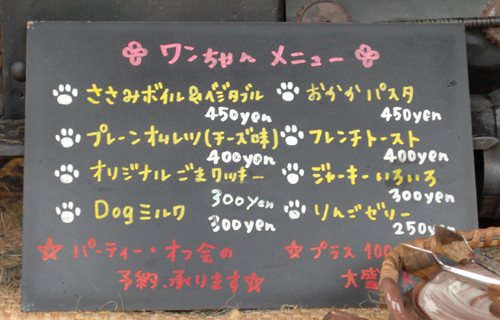 ワンちゃん メニュー
ささみボイル&ベジタブル
450yen
プレーンオムレツ(チーズ味)
400yen
オリジナルごまクッキー
300yen
Dogミルク
300yen
おかかパスタ
450yen
フレンチトースト
400yen
ジャーキーいろいろ
300yen
りんごゼリー
250
☆パーティー・オフ会の
予約、承ります☆
☆プラス100
大盛